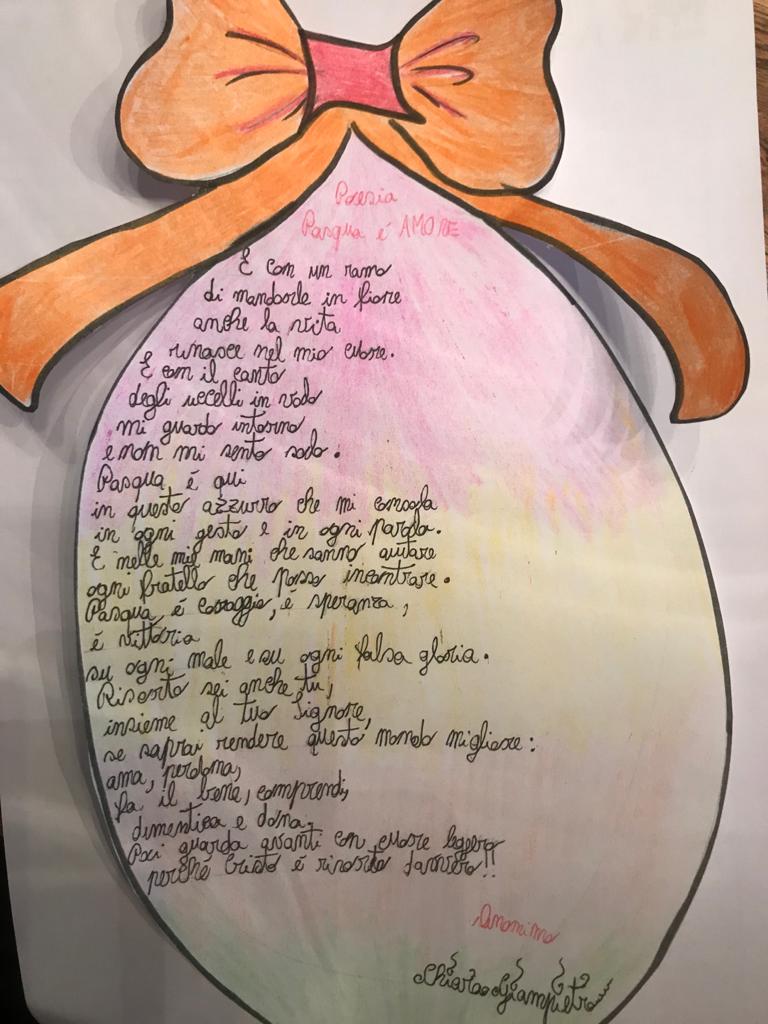 Poesia
Pasqua é AMORE
E con un ramo
di mandorle in fiore
anche la vita
rinasce nel mio cuore.
E con il canto
degli uccelli in volo
mi guardo intorno
e non mi sento solo.
Pasqua é qui
in questo azzurro che mi consola
in ogni gesto e in ogni parola.
E nelle mie mani che sanno aiutare
ogni fratello che posso incontrare.
Pasqua é coraggio, é speranza,
é vittoria
su ogni male e su ogni falsa gloria.
Risorto sei anche tu,
insieme al tuo Signore,
se saprai rendere questo mondo migliore:
ama, perdona,
fa il bene, comprendi,
dimentica e dona.
Poi guarda avanti con cuore leggero
perché Cristo é risorto davvero!!
Anonimo
Chiara Giampietro